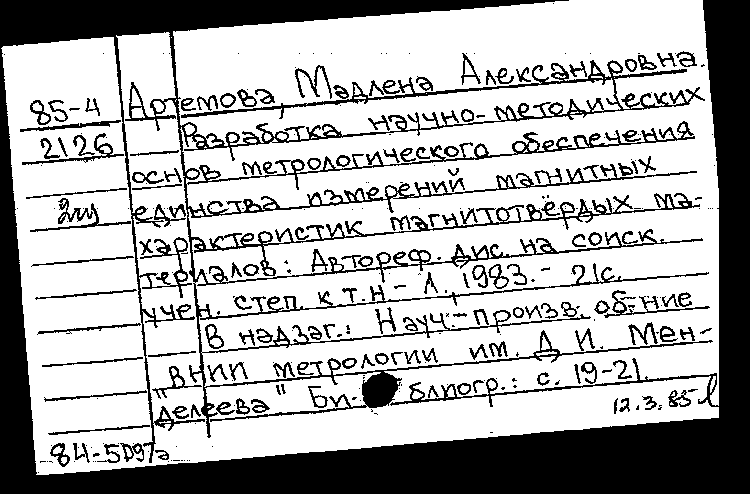 85-4 Артемова, Мадлена Александровна.
2126 Разработка научно-методических
основ метрологического обеспечения
единства измерений магнитных
характеристик магнитотвёрдых ма-
териалов: Автореф. дис. на соиск.
учен. степ. к.т.н. - Л., 1983. - 21с.
В надзаг.: Науч.-произв. об-ние
"ВНИИ метрологии им. Д. И. Мен-
делеева". Би- блиогр.: с. 19-21.
12.3.85
84-5097а